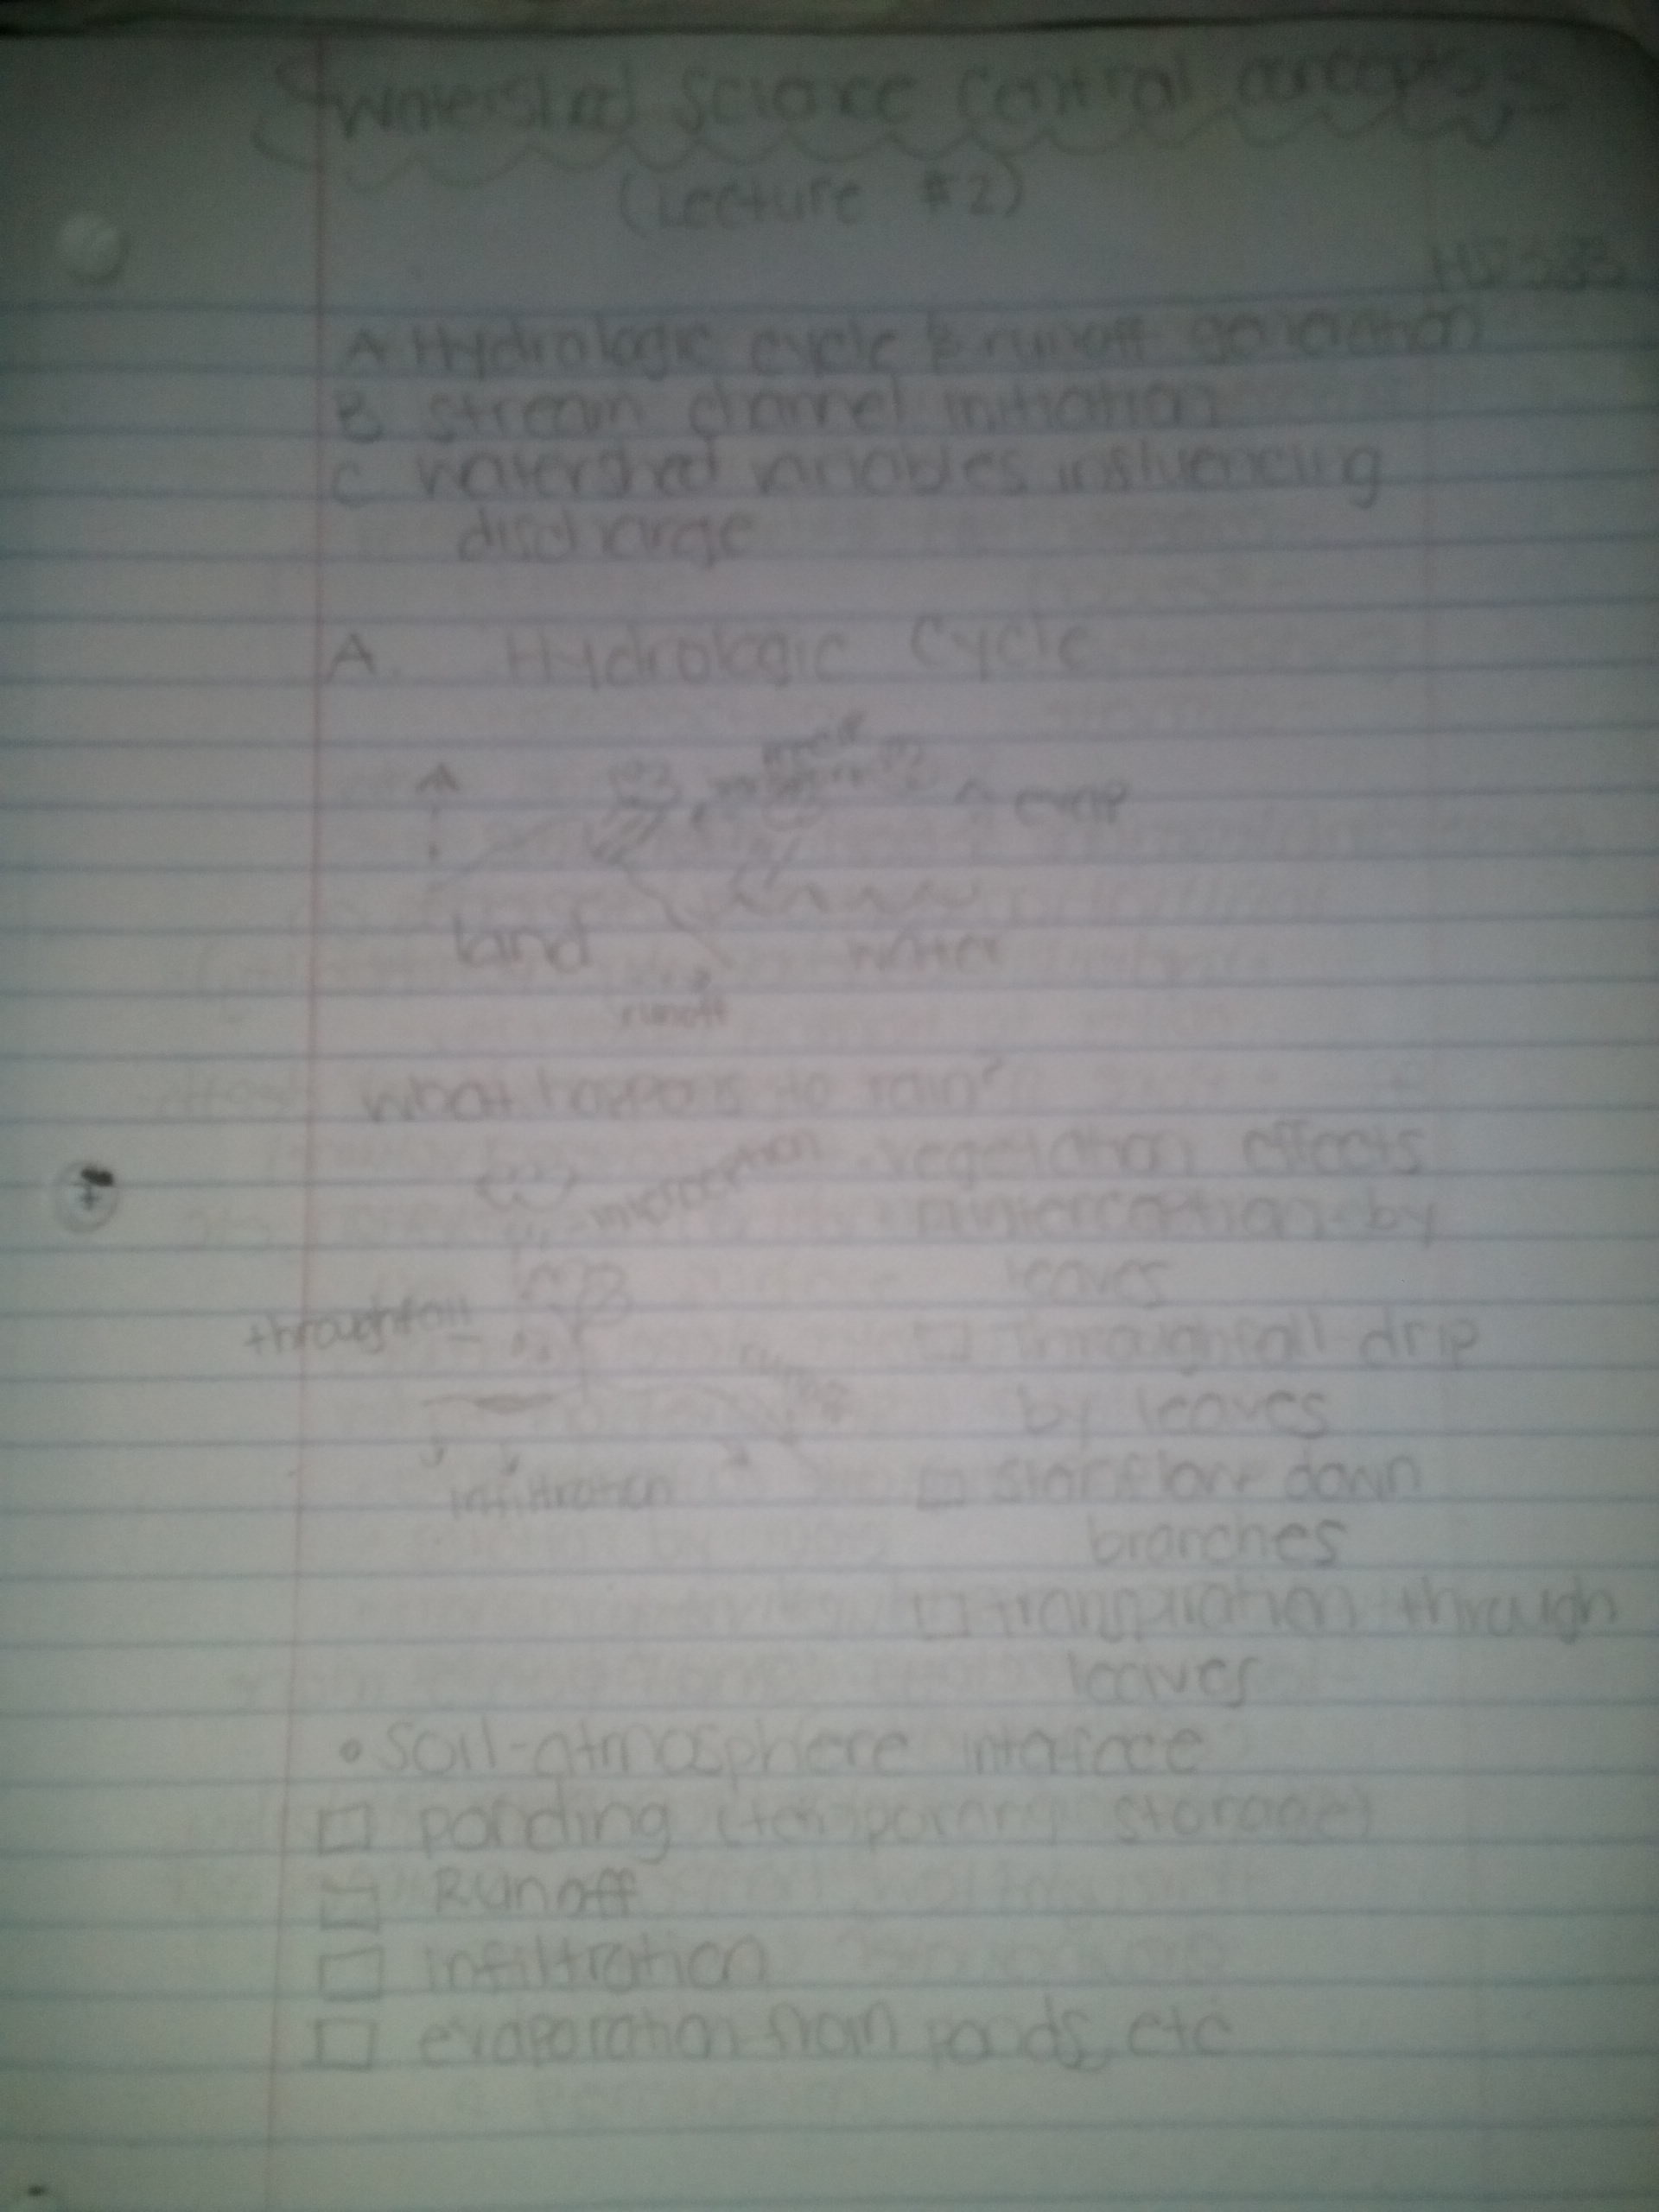 Watershed Science Central concepts
(Lecture #2)
A Hydrologic cycle & runoff generation
B stream channel initiation
C watershed variables influencing
discharge
A. Hydrologic Cycle
evap
land
water
runoff
what happens to rain?
interception
vegetation effects
by
leaves
throughfall
throughfall drip
runoff
by leaves
infiltration
down
branches
through
leaves
soil-atmosphere
ponding (temporary storage)
Runoff
infiltration
evaporation from ponds, etc